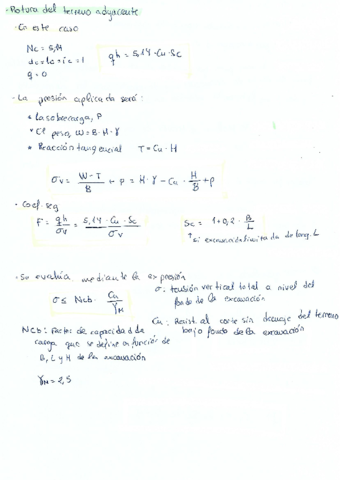 - Rotura del terreno adyacente
- En este caso
Nc = 5,14
dc = ic = 1
q = 0
qh = 5,14 · Cu · Sc
- La presión aplicada será:
* La sobrecarga, P
* El peso, W = B · H · γ
* Reacción tangencial T = Cu · H
σv = (W - T)/B + p = H · γ - Cu · H/B + p
- Coef. seg
F = qh/σv = (5,14 · Cu · Sc)/σv
Sc = 1 + 0,2 · B/L
↑ si excavación limitada de long. L
- Se evalúa mediante la expresión
σ ≤ Ncb · Cu/γM
σ: tensión vertical total a nivel del fondo de la excavación
Cu: Resist. al corte sin drenaje del terreno bajo fondo de la excavación
Ncb: Factor de capacidad de carga que se define en función de B, L y H de la excavación
γM = 2,5